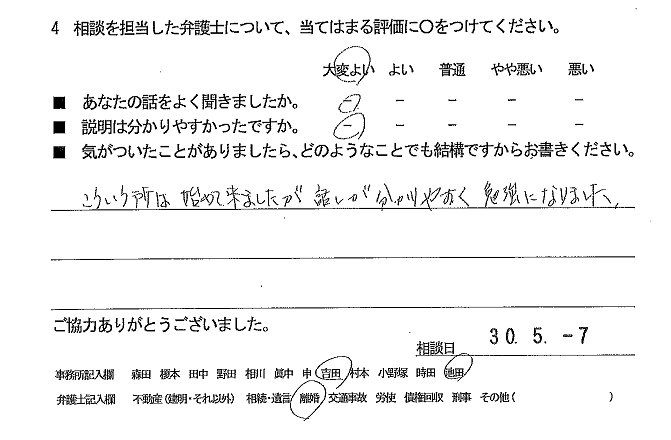 4 相談を担当した弁護士について、当てはまる評価に〇をつけてください。
大変よい よい 普通 やや悪い 悪い
■ あなたの話をよく聞きましたか。 － － － － －
■ 説明は分かりやすかったですか。 － － － － －
■ 気がついたことがありましたら、どのようなことでも結構ですからお書きください。
こういう所は 始めて来ましたが 話しが 分かりやすく 勉強になりました、
ご協力ありがとうございました。
相談日 30. 5. -7
事務所記入欄 森田 榎本 田中 野田 相川 眞中 申 吉田 村本 小野塚 時田 池田
弁護士記入欄 不動産（建明・それ以外） 相続・遺言 離婚 交通事故 労使 債権回収 刑事 その他（ ）